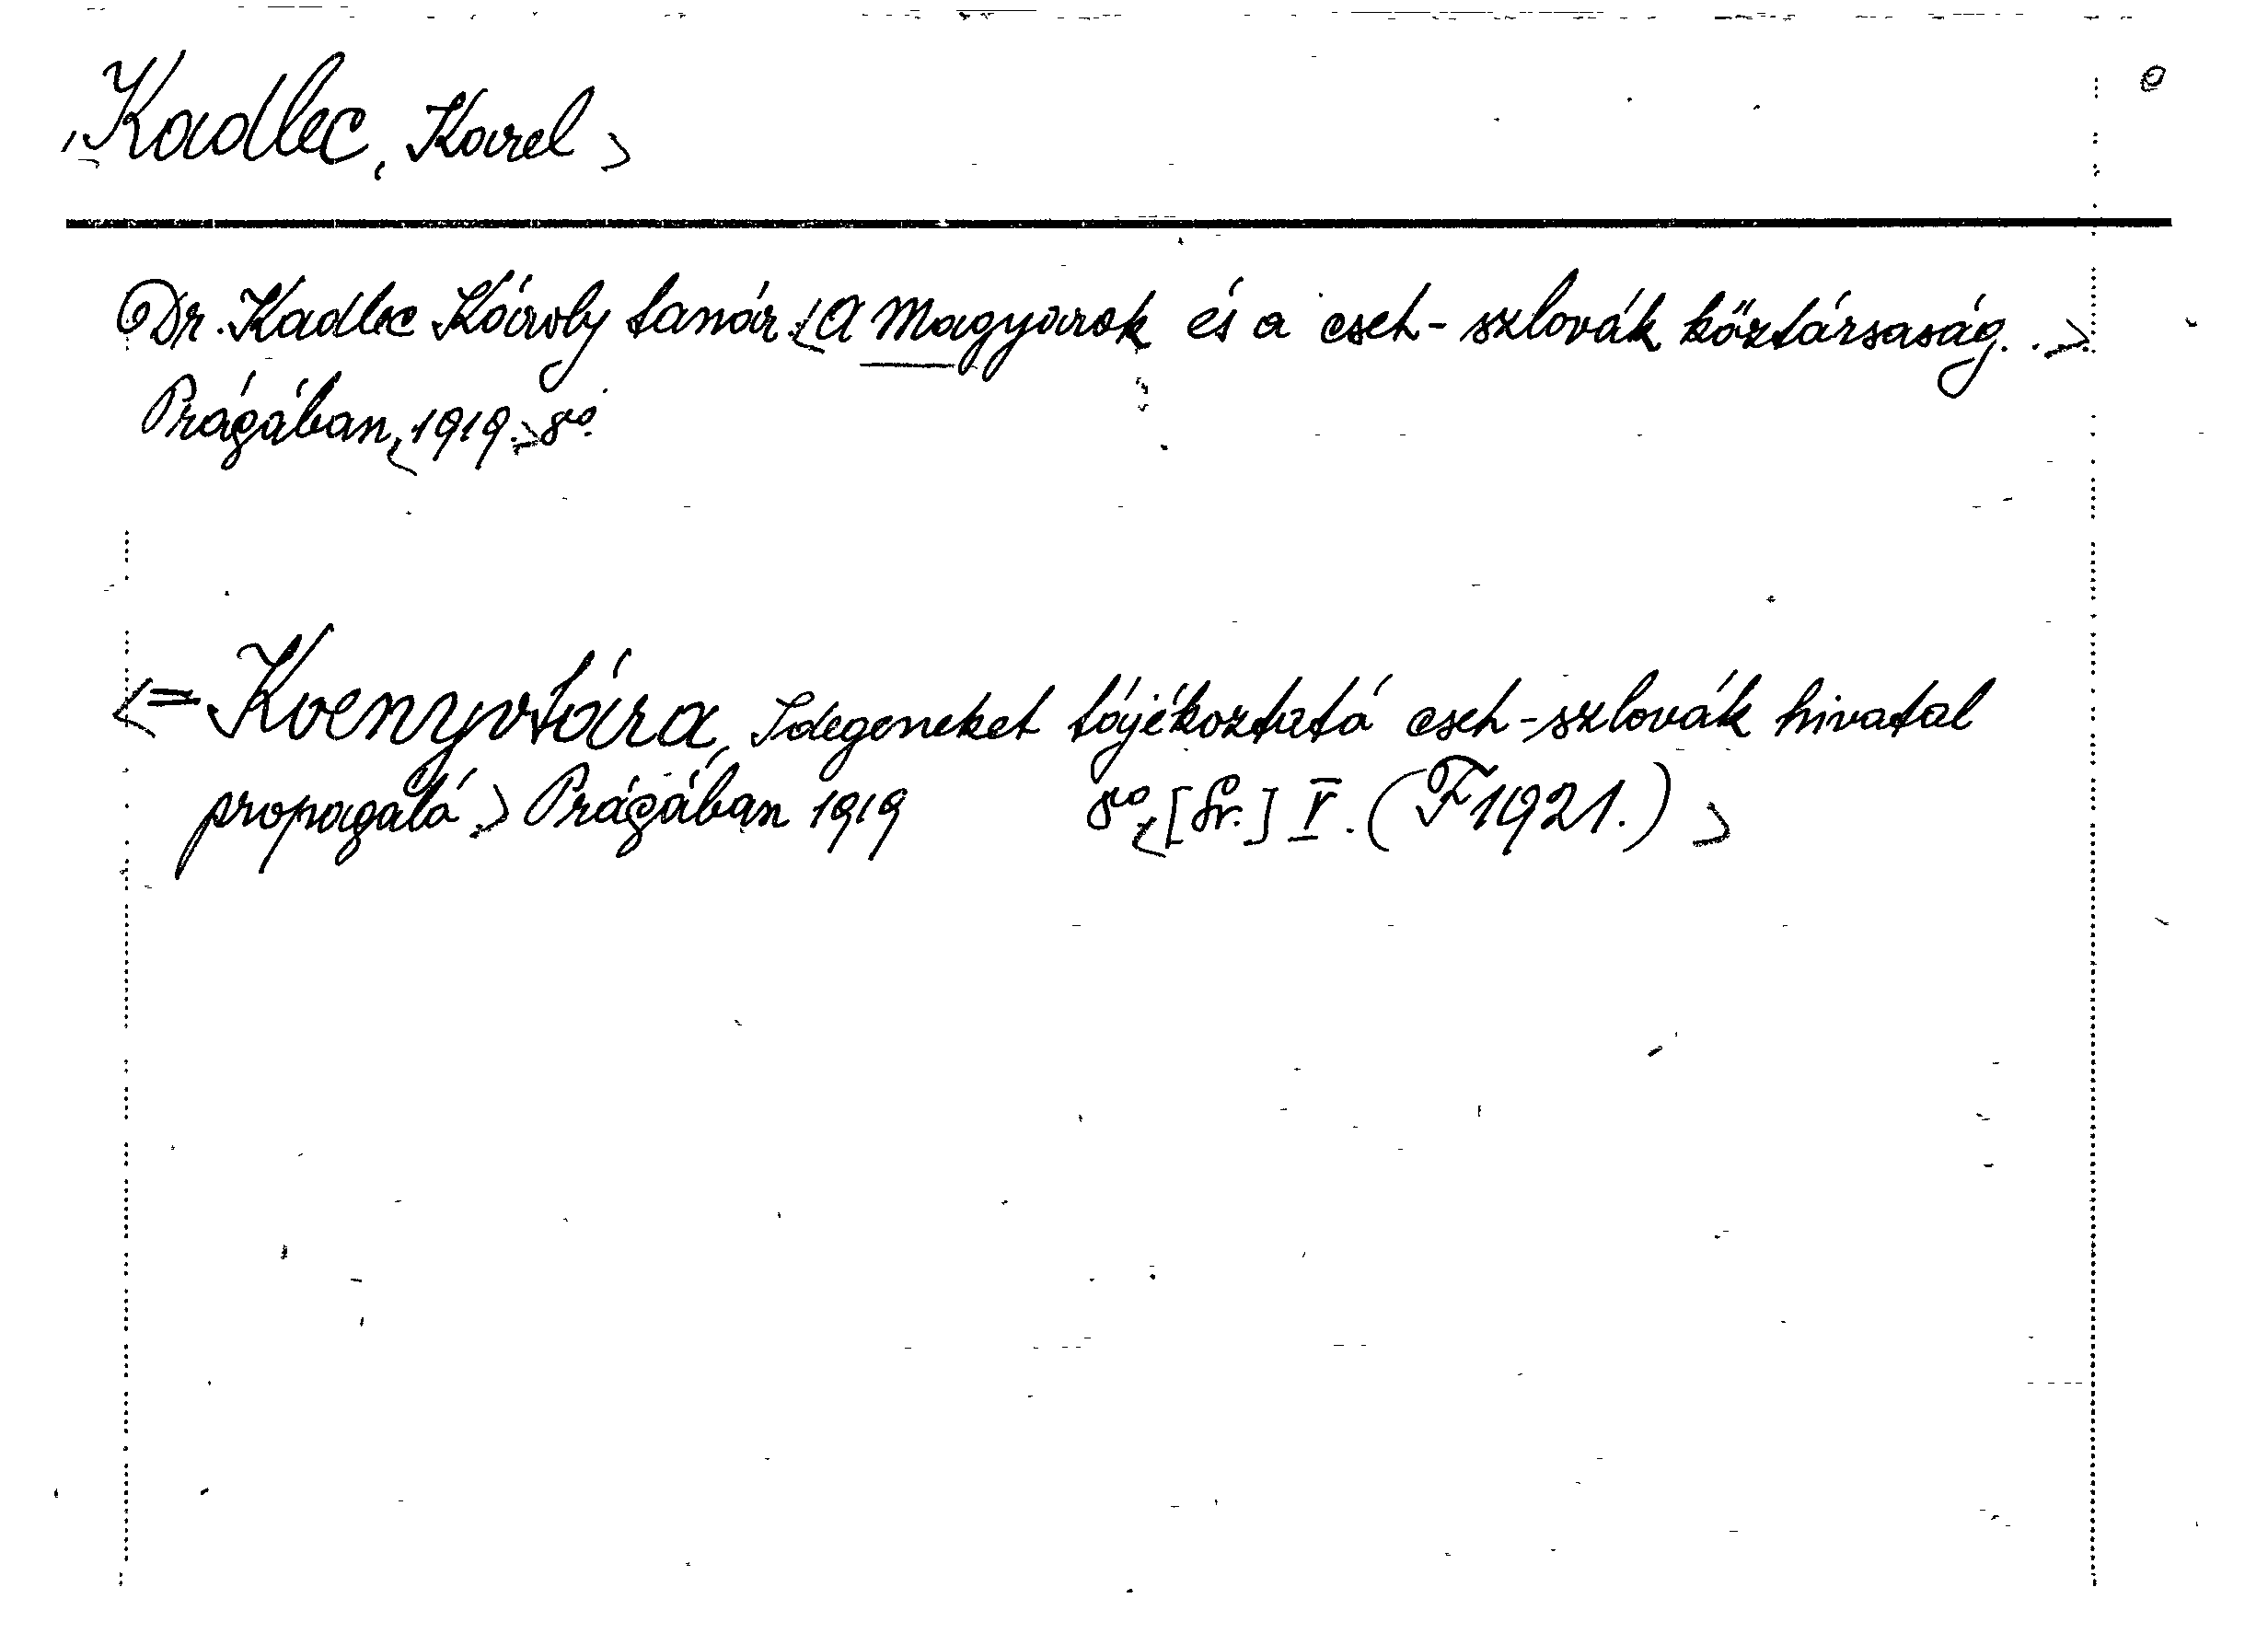 Kadlec, Karel >
Dr. Kadlec Károly tanár. <A Magyarok és a cseh-szlovák köztársaság. . >
Prágában, <1919.> 8º.
<= Kvenyvtára, Idegeneket tájékoztatá cseh-szlovák hivatal
propagalá.> Prágában 1919 8º. <[Sr.] V. (F 1921.) >